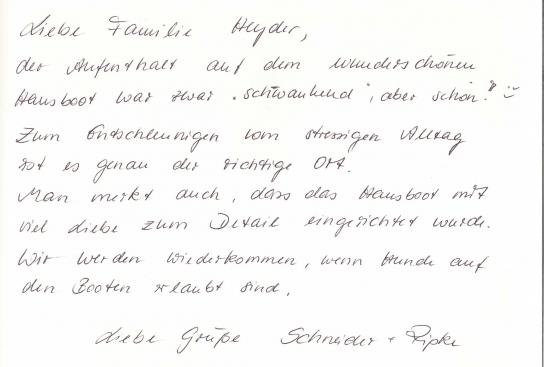 Liebe Familie Heyder,
der Aufenthalt auf dem wunderschönen
Hausboot war zwar „schwankend“, aber schön! :-)
Zum Entschleunigen vom stressigen Alltag
ist es genau der richtige Ort.
Man merkt auch, dass das Hausboot mit
viel Liebe zum Detail eingerichtet wurde.
Wir werden wiederkommen, wenn Hunde auf
den Booten erlaubt sind.
Liebe Grüße Schneider + Pipke